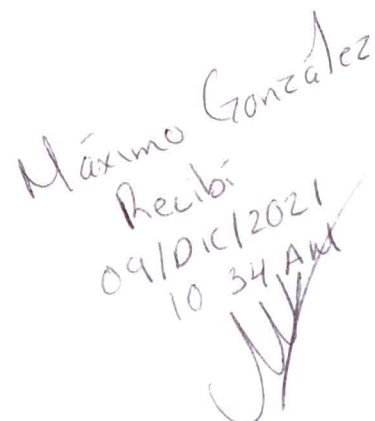 Máximo González
Recibí
09/DIC/2021
10 34 AM